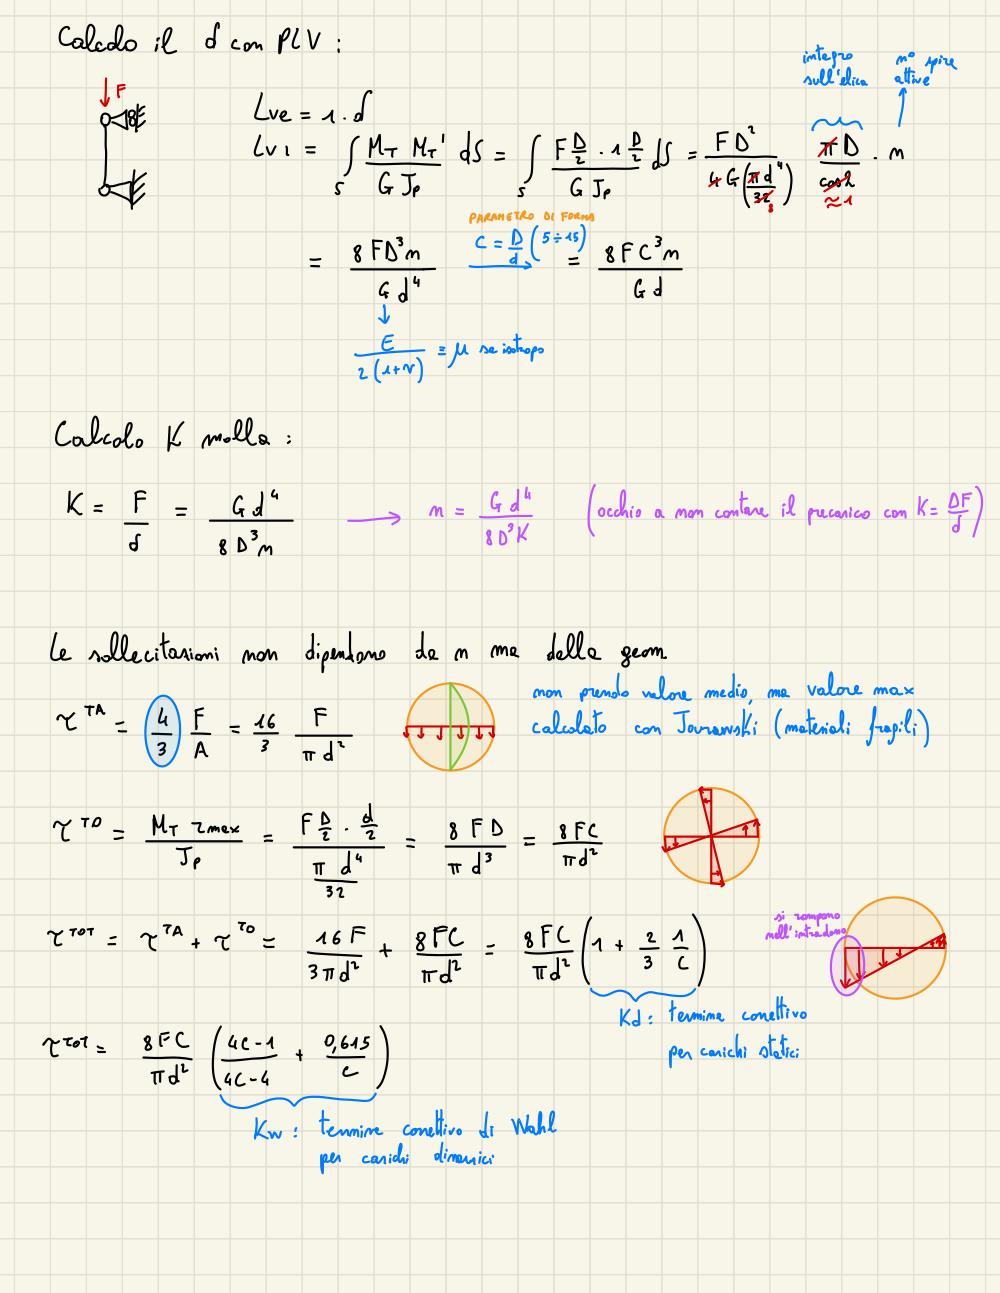 Calcolo il δ con PLV :
integro
sull'elica
n° spire
attive
F
Lve = 1 . δ
Lvi = ∫_S M_T M_T' / G J_p dS = ∫_S F D/2 . 1 D/2 / G J_p dS = F D² / 4 G (π d⁴ / 32 8) π D / cos α . n
≈ 1
PARAMETRO DI FORMA
= 8 F D³ n / G d⁴ C = D/d (5 ÷ 15) = 8 F C³ n / G d
E / 2 (1+ν) = μ se isotropo
Calcolo K molla :
K = F / δ = G d⁴ / 8 D³ n → n = G d⁴ / 8 D³ K (occhio a non contare il precarico con K = ΔF / δ)
Le sollecitazioni non dipendono da n ma dalla geom
τ^TA = 4/3 F/A = 16/3 F / π d²
non prendo valore medio, ma valore max
calcolato con Jourawski (materiali fragili)
τ^TO = M_T r_max / J_p = F D/2 . d/2 / π d⁴ / 32 = 8 F D / π d³ = 8 F C / π d²
si rompono
nell'intradosso
τ^TOT = τ^TA + τ^TO = 16 F / 3 π d² + 8 F C / π d² = 8 F C / π d² (1 + 2/3 1/C)
Kd : termine correttivo
per carichi statici
τ^TOT = 8 F C / π d² (4C-1 / 4C-4 + 0,615 / C)
Kw : termine correttivo di Wahl
per carichi dinamici